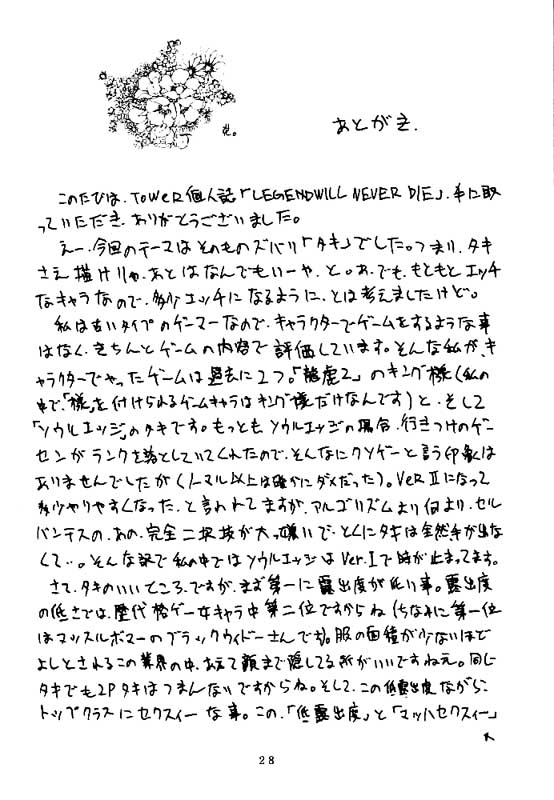 あとがき.
このたびは、TOWER個人誌「LEGEND WILL NEVER DIE」、手に取
っていただき、ありがとうございました。
えー、今回のテーマはそのものズバリ「タキ」でした。つまり、タキ
さえ描けりゃ、あとはなんでもいーや、と。あ、でも、もともとエッチ
なキャラなので、多少エッチになるように、とは考えましたけど。
私は古いタイプのゲーマーなので、キャラクターでゲームをするような事
はなく、きちんとゲームの内容で評価しています。そんな私が、キ
ャラクターでやったゲームは過去に2つ。「龍虎2」のキング様(私の
中で、「様」を付けられるゲームキャラはキング様だけなんです)と、そして
「ソウルエッジ」のタキです。もっともソウルエッジの場合、行きつけのゲー
センがランクを落としていてくれたので、そんなにクソゲーと言う印象は
ありませんでしたが(ノーマル以上は確かにダメだった)。Ver.IIになって
多少やりやすくなった、と言われてますが、アルゴリズムより何より、セル
バンテスの、あの、完全二択技が大っ嫌いで、とくにタキは全然手が出な
くて…。そんな訳で私の中ではソウルエッジはVer.Iで時が止まってます。
さて、タキのいいところ、ですが、まず第一に露出度が低い事。露出度
の低さでは、歴代格ゲー女キャラ中第二位ですからね(ちなみに第一位
はマッスルボマーのブラックウィドーさんです)。服の面積が少ないほど
よしとされるこの業界の中、あえて顔まで隠してる所がいいですねえ。同じ
タキでも2Pタキはつまんないですからね。そして、この低露出度ながら、
トップクラスにセクスィーな事。この、「低露出度」と「マッハセクスィー」
28